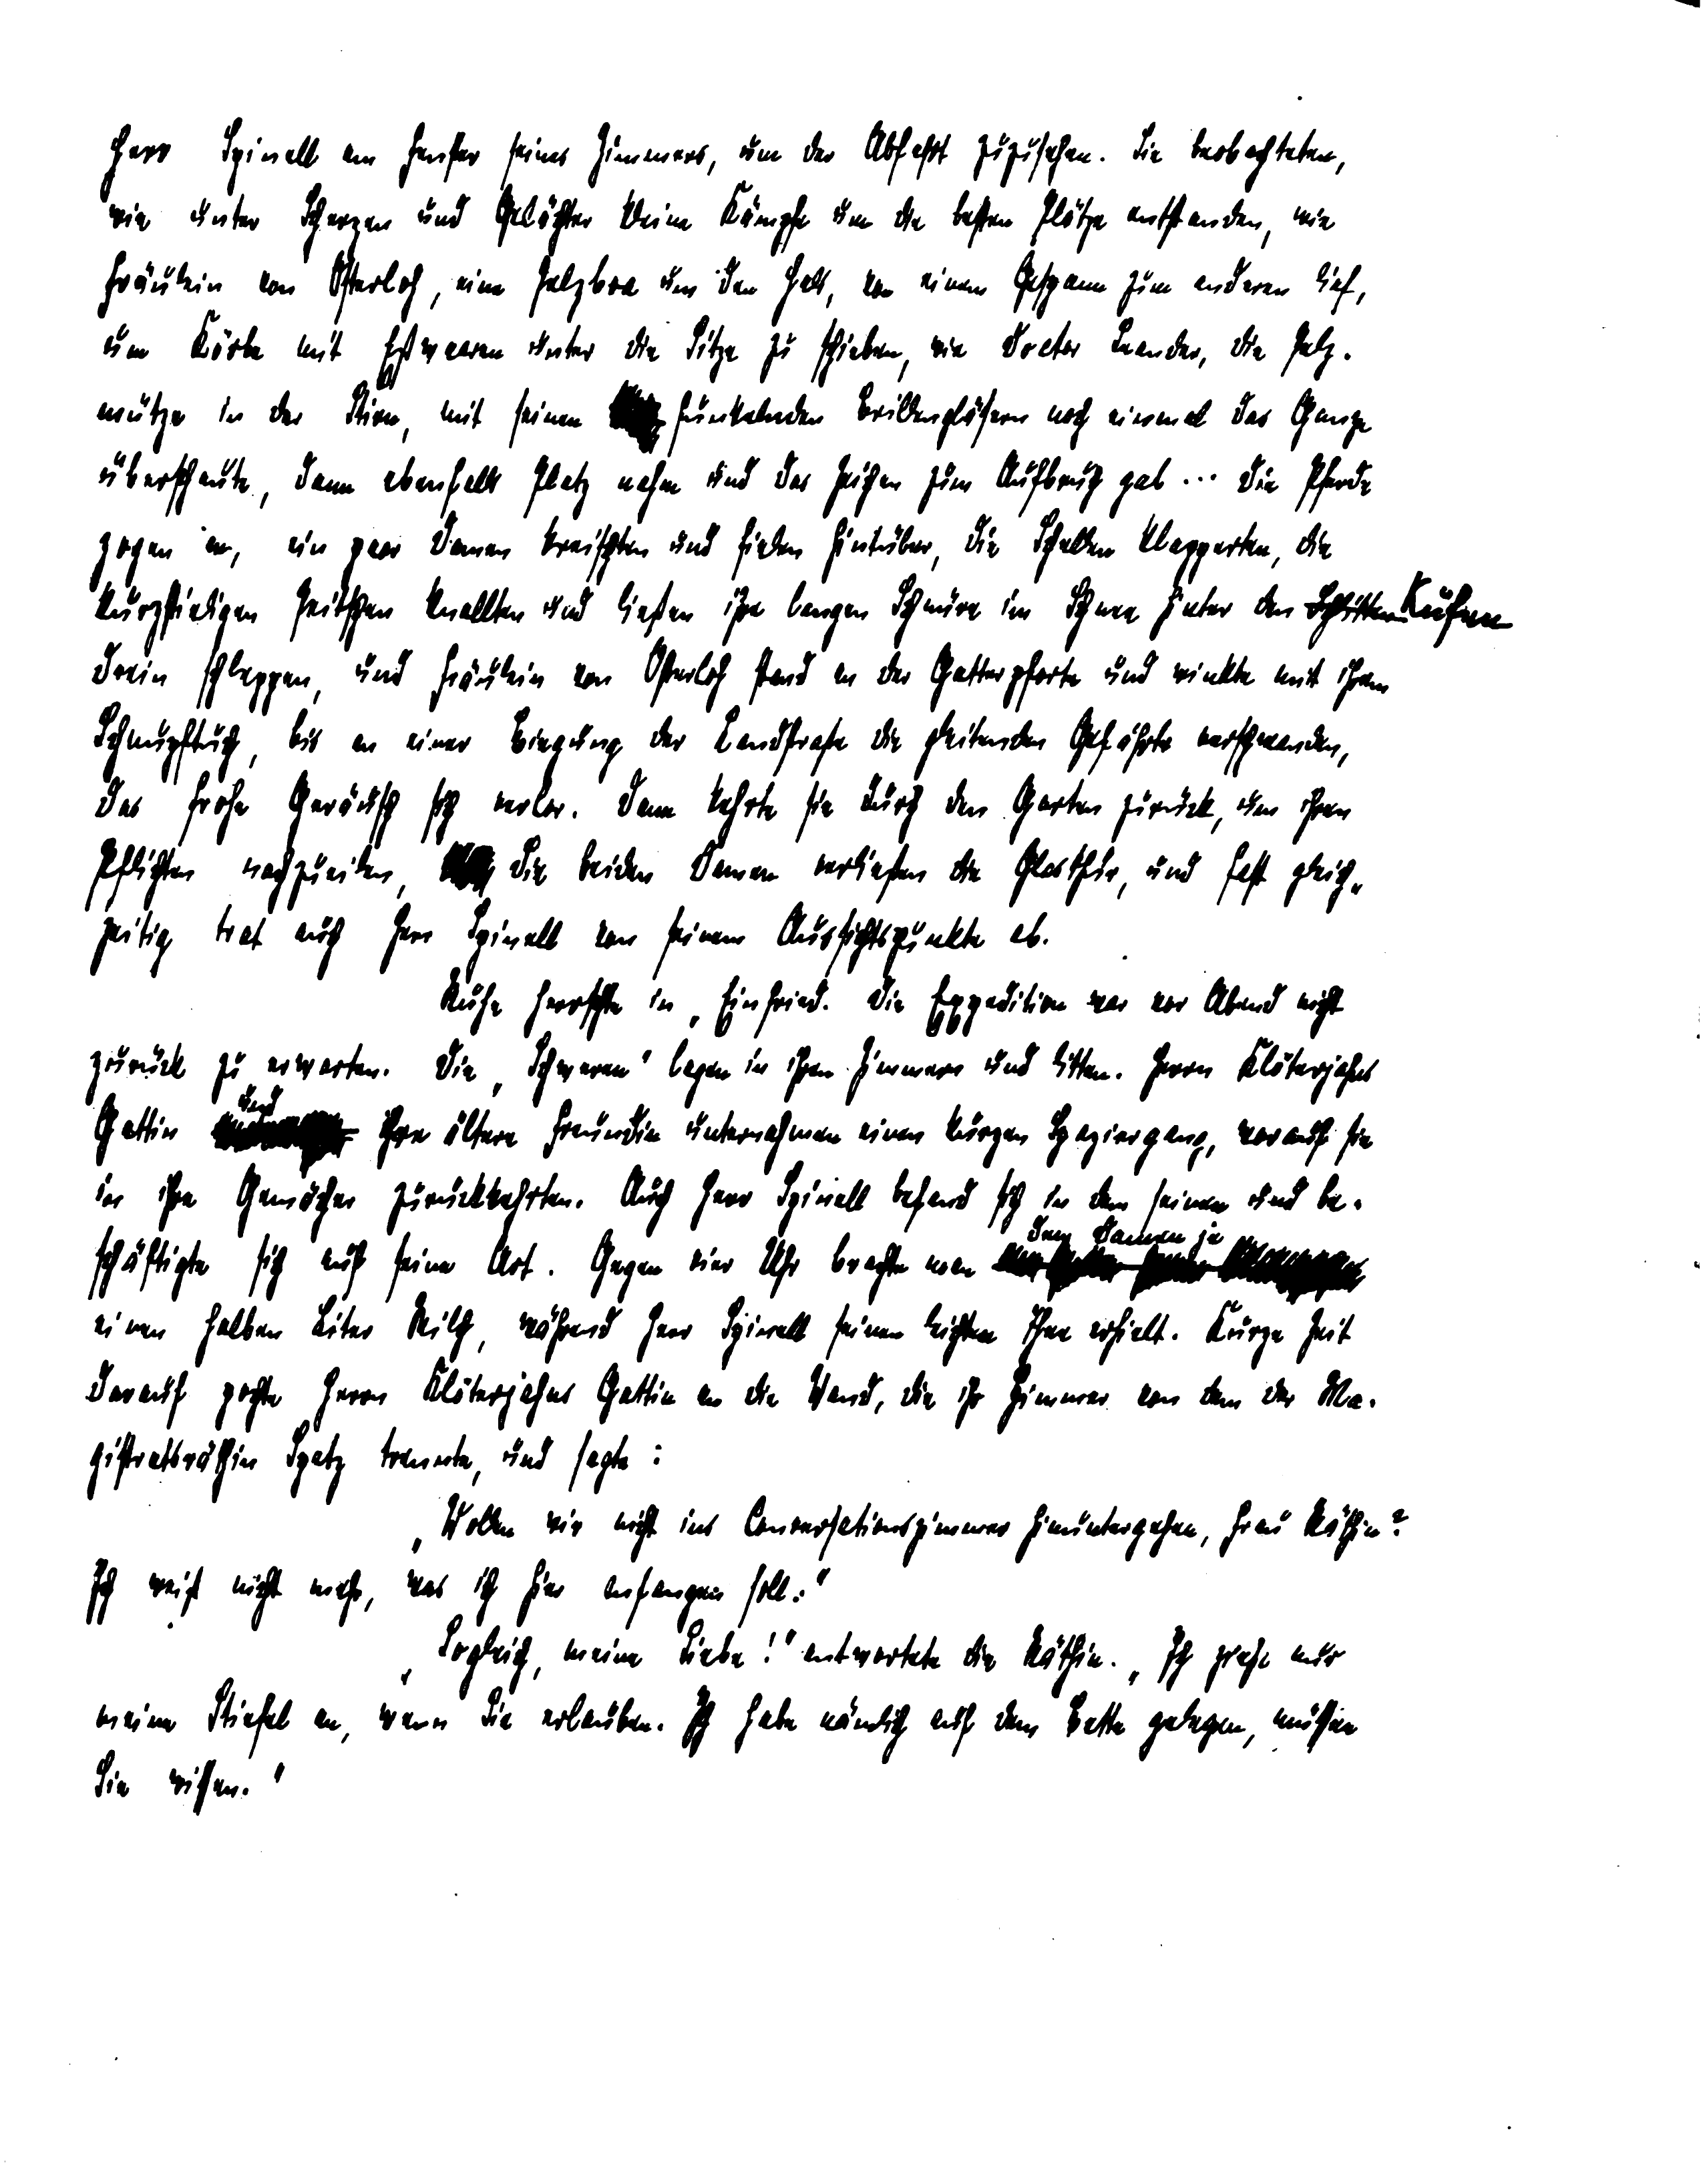 Herr Spinell am Fenster seines Zimmers, um der Abfahrt zuzusehen. Sie beobachteten,
wie unter Scherzen und Gelächter kleine Kämpfe um die besten Plätze entstanden, wie
Fräulein von Osterloh, eine Pelzboa um den Hals, von einem Gespann zum anderen lief,
um Körbe mit Eßwaaren unter die Sitze zu schieben, wie Doctor Leander, die Pelz-
mütze in der Stirn, mit seinen funkelnden Brillengläsern noch einmal das Ganze
überschaute, dann ebenfalls Platz nahm und das Zeichen zum Aufbruch gab ... Die Pferde
zogen an, ein paar Damen kreischten und fielen hintüber, die Schellen klapperten, die
kurzstieligen Peitschen knallten und ließen ihre langen Schnüre im Schnee hinter den Schlitten Kufen
drein schleppen, und Fräulein von Osterloh stand an der Gatterpforte und winkte mit ihrem
Schnupftuch, bis an einer Biegung der Landstraße die gleitenden Gefährte verschwanden,
das frohe Geräusch sich verlor. Dann kehrte sie durch den Garten zurück, um ihren
Pflichten nachzueilen, die beiden Damen verließen die Glasthür, und fast gleich-
zeitig trat auch Herr Spinell von seinem Aussichtspunkte ab.
Ruhe herrschte in „Einfried. Die Expedition war vor Abend nicht
zurück zu erwarten. Die „Schweren" lagen in ihren Zimmern und litten. Herrn Klöterjahns
Gattin und ihre ältere Freundin unternahmen einen kurzen Spaziergang, worauf sie
in ihre Gemächer zurückkehrten. Auch Herr Spinell befand sich in dem seinen und be-
schäftigte sich auf seine Art. Gegen vier Uhr brachte man den Damen je
einen halben Liter Milch, während Herr Spinell seinen leichten Thee erhielt. Kurze Zeit
darauf pochte Herrn Klöterjahns Gattin an die Wand, die ihr Zimmer von dem der Ma-
gistratsräthin Spatz trennte, und sagte:
„Wollen wir nicht ins Conversationszimmer hinuntergehen, Frau Räthin?
Ich weiß nicht mehr, was ich hier anfangen soll."
„Sogleich, meine Liebe!" antwortete die Räthin. „Ich ziehe nur
meine Stiefel an, wenn Sie erlauben. Ich habe nämlich auf dem Bette gelegen, müssen
Sie wissen."